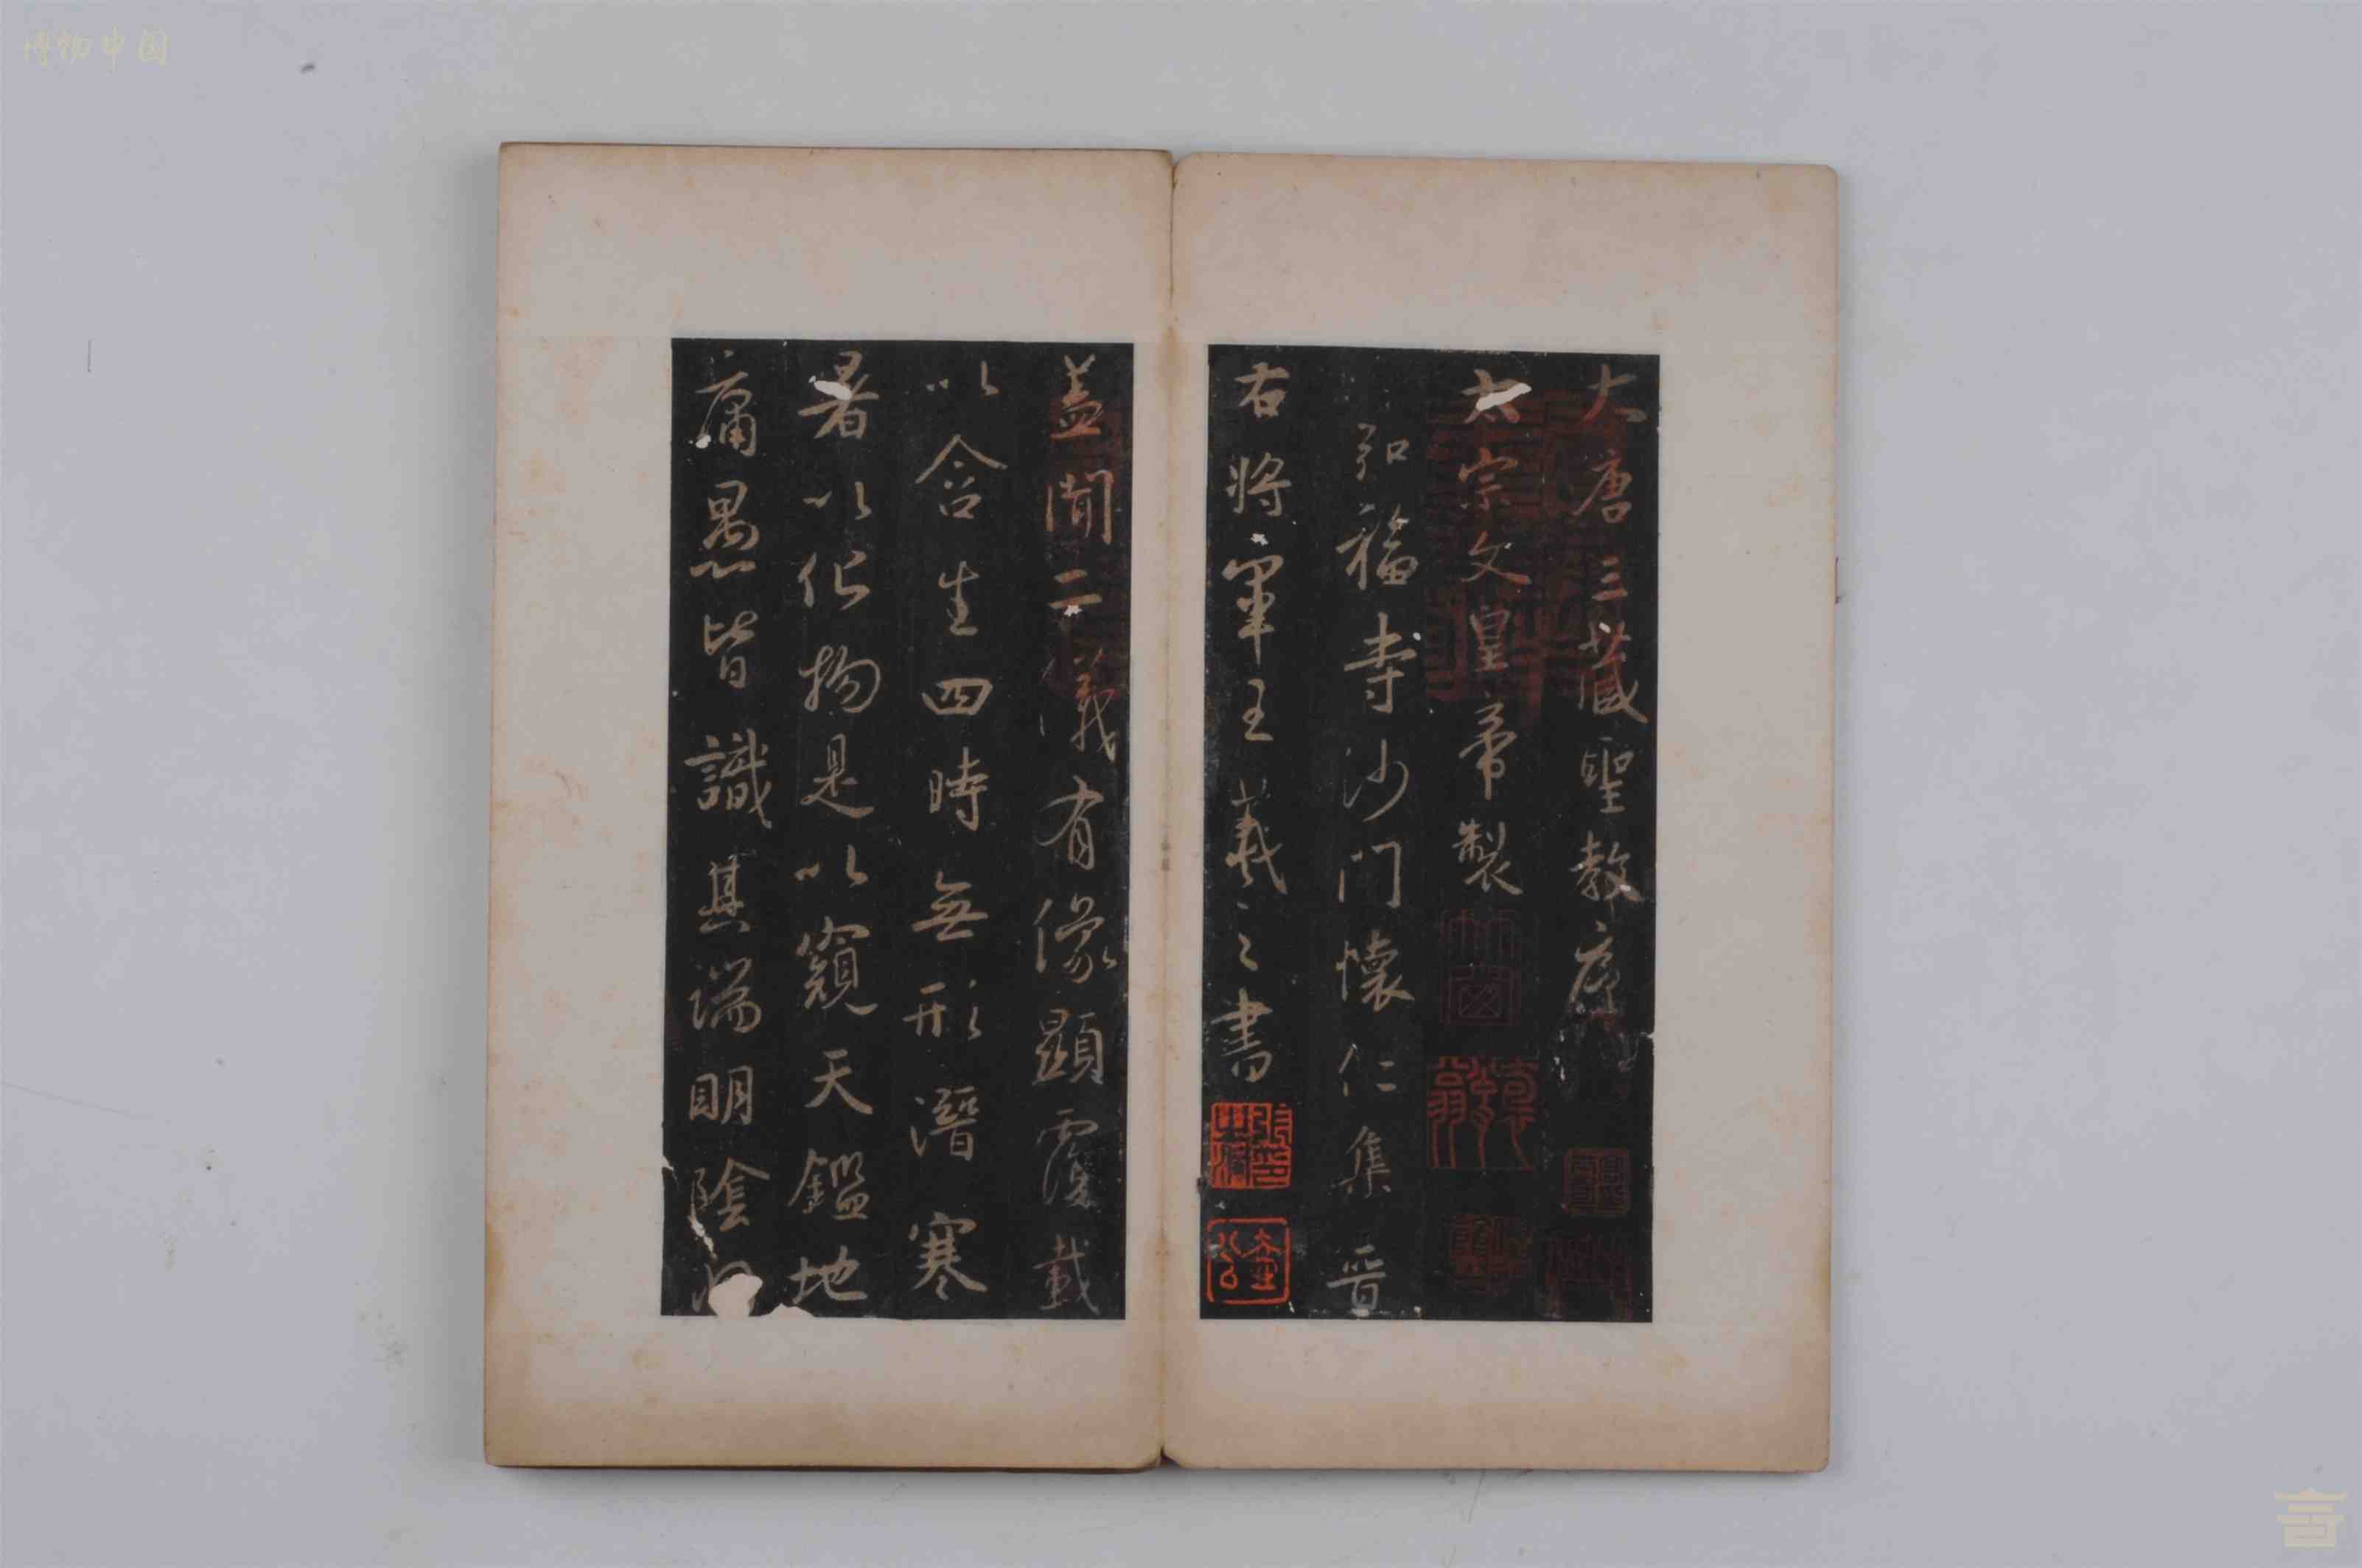 大唐三藏聖教序
太宗文皇帝製
弘福寺沙門懷仁集晉
右將軍王羲之書
蓋聞二儀有像顯覆載
以含生四時無形潛寒
暑以化物是以窺天鑑地
庸愚皆識其端明陰
博物中国